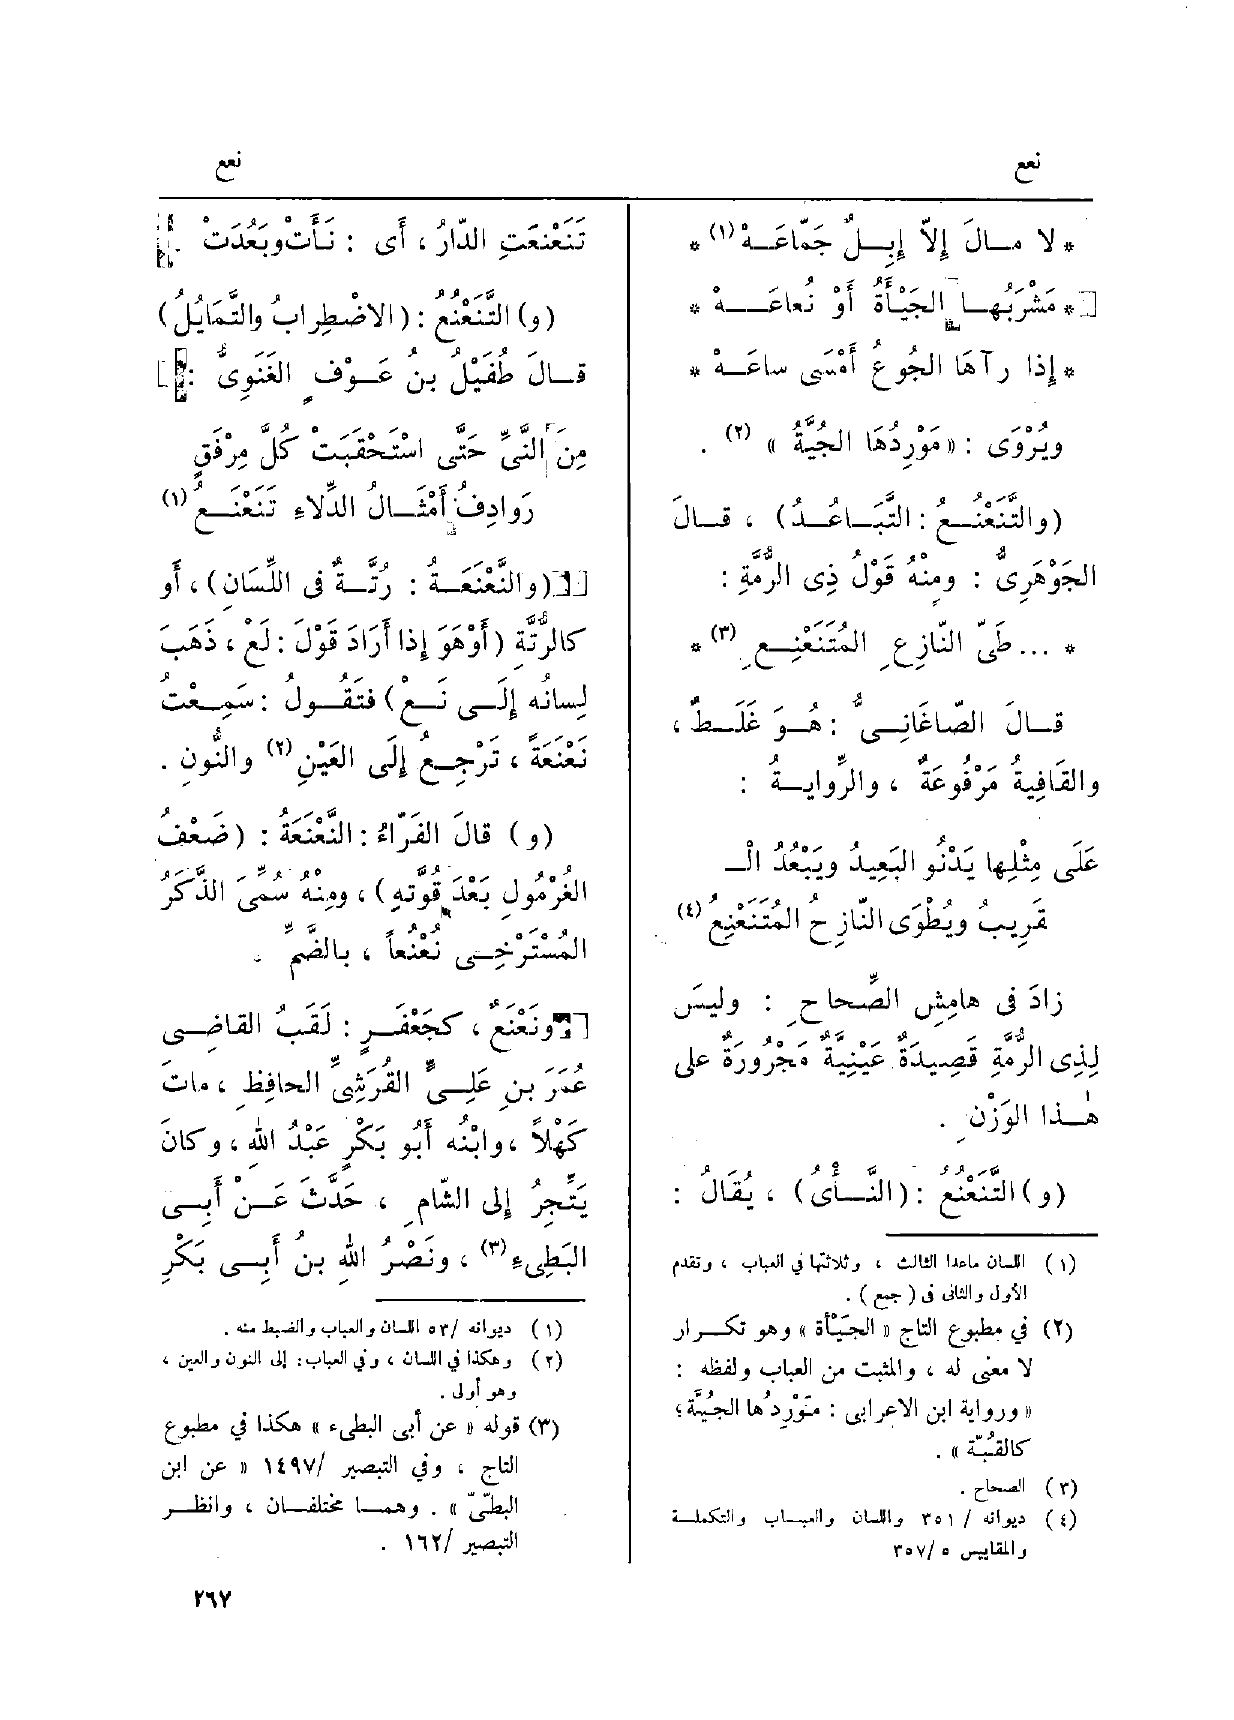 نعع
نعع
* لا مــالَ إلاّ إبِــلٌ جَمّاعَــهْ (١) *
* مَشْرَبُهــا الجَيْأَةُ أَوْ نُعاعَــــهْ *
* إذا رآهَا الجُوعُ أَمْسَى ساعَــهْ *
ويُرْوَى : «مَوْرِدُهَا الجُيَّةُ » (٢) .
(والتَّنَعْنُــعُ : التَّبَــاعُــدُ) ، قــالَ
الجَوْهَرِىُّ : ومِنْهُ قَوْلُ ذِى الرُّمَّةِ :
* ... طَىَّ النّازِعِ المُتَنَعْنِــعِ (٣) *
قــالَ الصّاغانِــىُّ : هُــوَ غَلَــطٌ ،
والقَافِيةُ مَرْفُوعَةٌ ، والرِّوايــةُ :
عَلَى مِثْلِها يَدْنُو البَعِيدُ ويَبْعُدُ الـ
قَرِيبُ ويُطْوَى النّازِحُ المُتَنَعْنِعُ (٤)
زادَ فى هامِشِ الصِّحاحِ : وليسَ
لِذِى الرُّمَّةِ قَصِيدَةٌ عَيْنِيَّةٌ مَجْرُورَةٌ على
هٰــذا الوَزْنِ .
(و) التَّنَعْنُعُ : (النَّــأْىُ) ، يُقَالُ :
(١) اللسان ماعدا الثالث ، وثلاثتها في العباب ، وتقدم
الأول والثانى فى ( جمع ) .
(٢) في مطبوع التاج « الجَيْأَة » وهو تكــرار
لا معنى له ، والمثبت من العباب ولفظه :
« ورواية ابن الاعرابى : مَوْرِدُها الجُيَّة ؛
كالقُبّة » .
(٣) الصحاح .
(٤) ديوانه / ٣٥١ واللسان والعبــاب والتكملــة
والمقاييس ٥ /٣٥٧
تَنَعْنَعَتِ الدّارُ ، أَى : نَــأَتْ وبَعُدَتْ .
(و) التَّنَعْنُعُ : (الاضْطِرابُ والتَّمَايُلُ)
قــالَ طُفَيْلُ بنُ عَــوْفٍ الغَنَوِىُّ :
مِنَ النَّىِّ حَتَّى اسْتَحْقَبَتْ كُلَّ مِرْفَقٍ
رَوادِفُ أَمْثــالُ الدِّلاءِ تَنَعْنَــعُ (١)
(والنَّعْنَعَــةُ : رُتَّــةٌ فى اللِّسَانِ) ، أو
كالرُّتَّةِ (أَوْ هُوَ إذا أَرَادَ قَوْلَ : لَعْ ، ذَهَبَ
لِسانُه إلَــى نَــعْ) فتَقُــولُ : سَمِــعْتُ
نَعْنَعَةً ، تَرْجِــعُ إلَى العَيْنِ (٢) والنُّونِ .
(و) قالَ الفَرّاءُ : النَّعْنَعَةُ : (ضَعْفُ
الغُرْمُولِ بَعْدَ قُوَّتِهِ) ، ومِنْهُ سُمِّىَ الذَّكَرُ
المُسْتَرْخِــى نُعْنُعاً ، بالضَّمِّ .
ونَعْنَعٌ ، كجَعْفَــرٍ : لَقَبُ القاضِــى
عُمَرَ بنِ عَلِــىٍّ القُرَشِىِّ الحافِظِ ، ماتَ
كَهْلاً ، وابْنُه أَبُو بَكْرٍ عَبْدُ اللهِ ، وكانَ
يَتَّجِرُ إلى الشَّامِ ، حَدَّثَ عَــنْ أَبِــى
البَطِىءِ (٣) ، ونَصْرُ اللهِ بنُ أَبِــى بَكْرِ
(١) ديوانه /٥٣ اللسان والعباب والضبط منه .
(٢) وهكذا في اللسان ، وفي العباب : إلى النون والعين ،
وهو أولى .
(٣) قوله « عن أبى البطىء » هكذا في مطبوع
التاج ، وفي التبصير /١٤٩٧ « عن ابن
البطّىّ » . وهمــا مختلفــان ، وانظــر
التبصير /١٦٢ .
٢٦٧